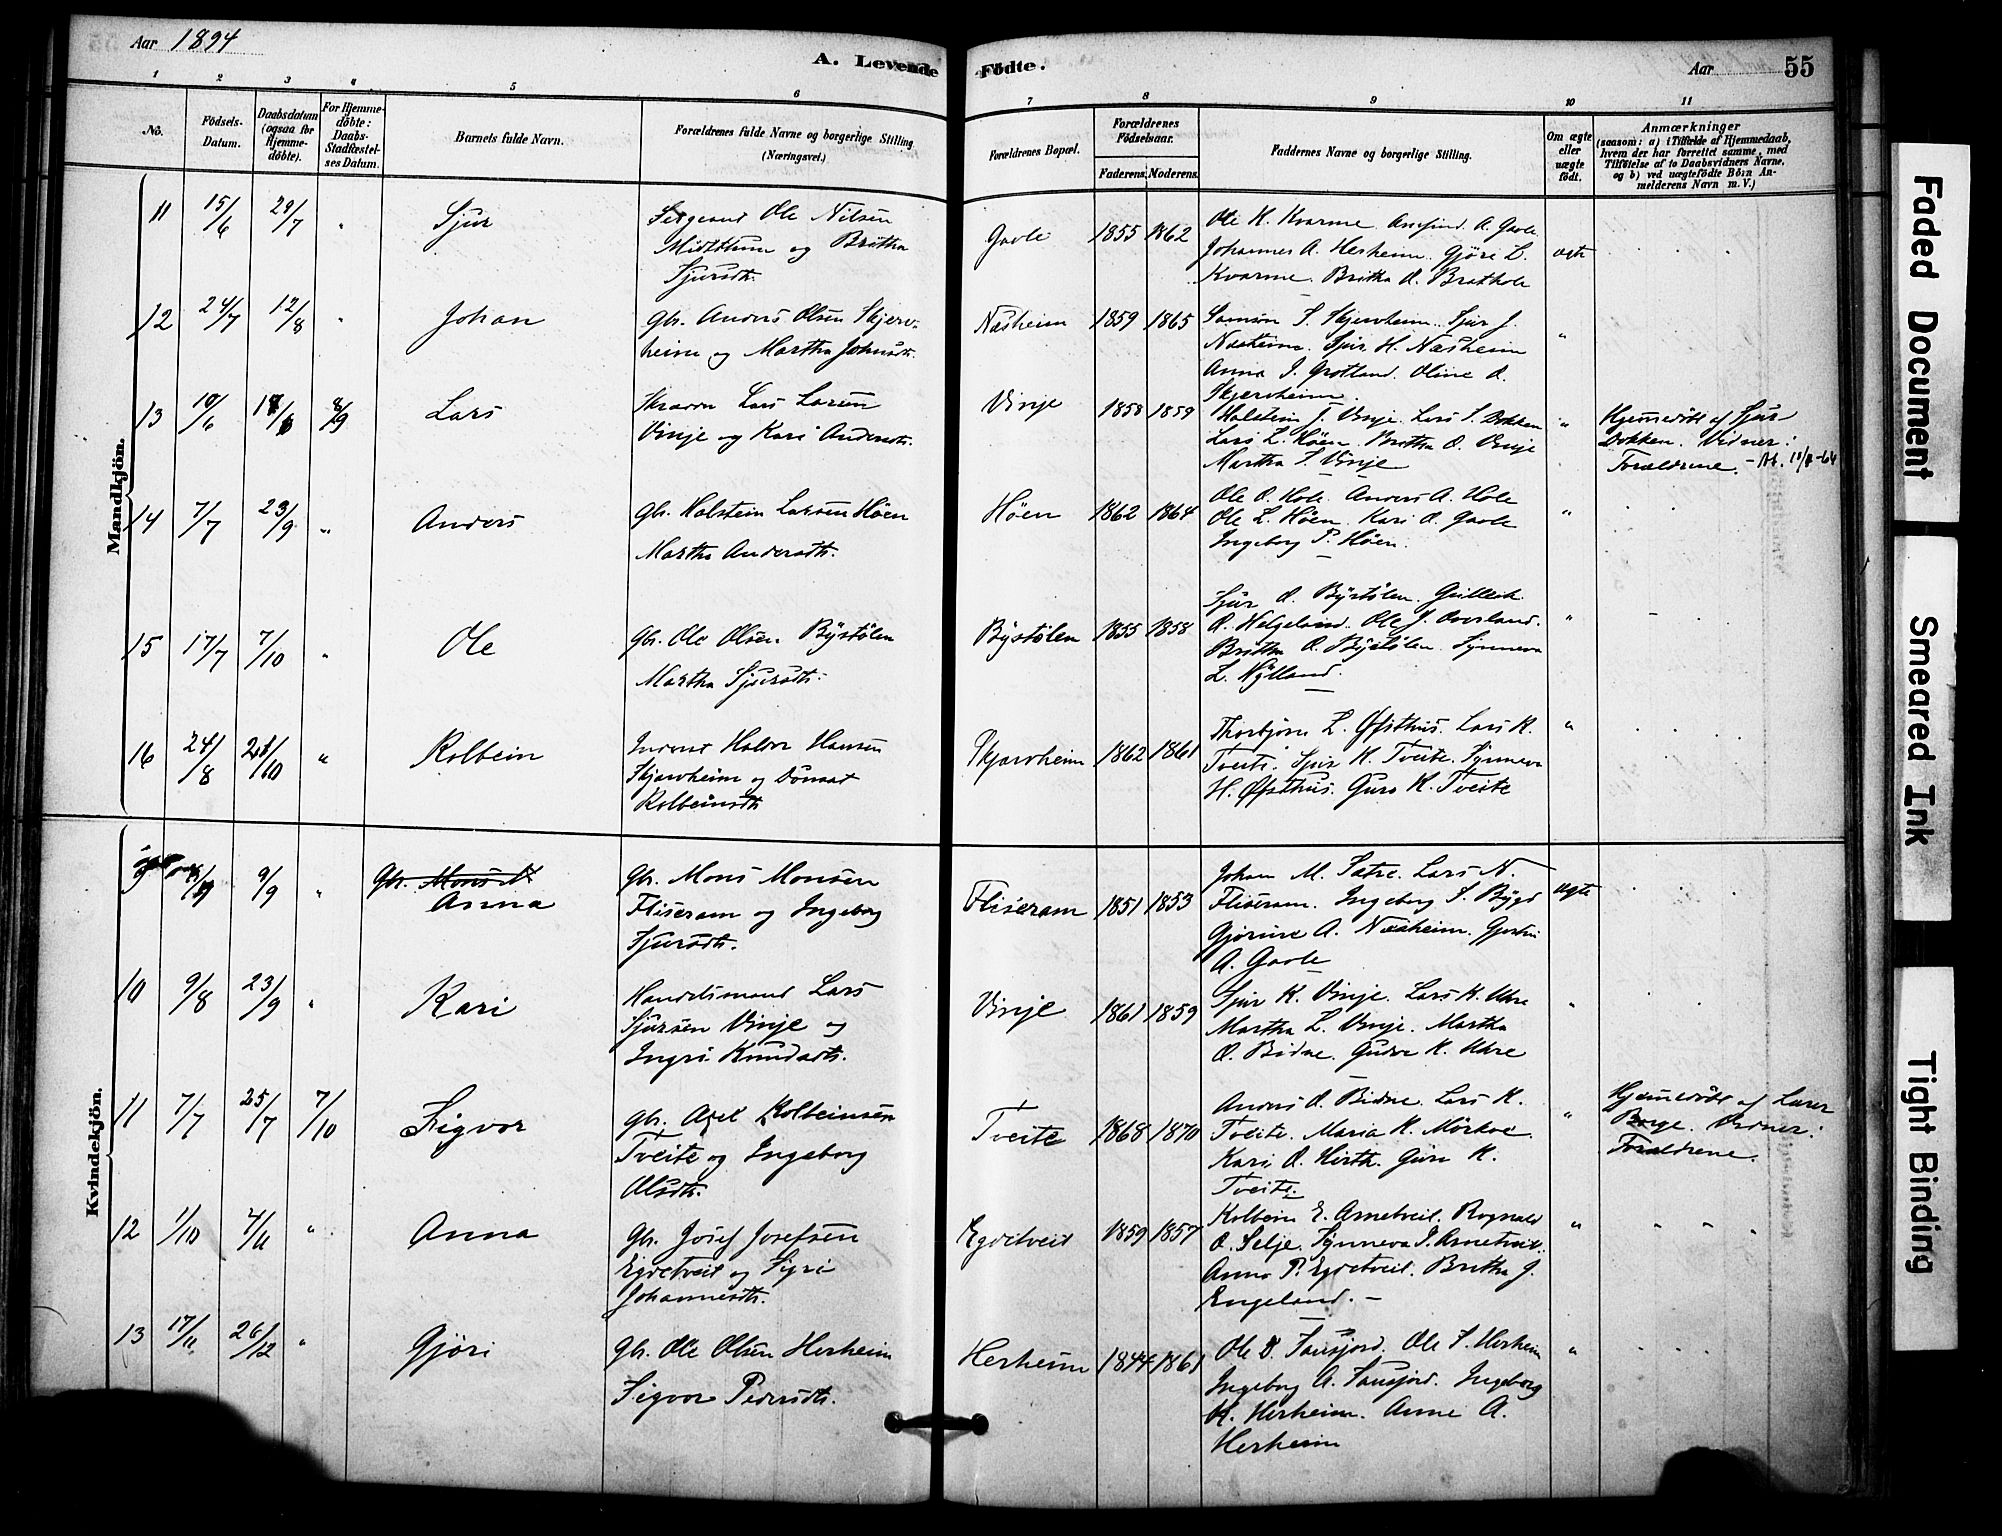 Aar 1894
A. Levende Födte.
Aar 55
1 2 3 4 5 6 7 8 9 10 11
No.
Födsels-
Datum.
Daabsdatum
(ogsaa for
Hjemme-
döbte).
For Hjemme-
döbte:
Daabs-
Stadfæstel-
ses Datum.
Barnets fulde Navn.
Forældrenes fulde Navne og borgerlige Stilling
(Næringsvei.)
Forældrenes Bopæl.
Forældrenes
Födselsaar.
Faderens. Moderens.
Faddernes Navne og borgerlige Stilling.
Om ægte
eller
uægte
födt.
Anmærkninger
(saasom: a) i Tilfælde af Hjemmedaab,
hvem der har forrettet samme, med
Tilföielse af to Daabsvidners Navne,
og b) ved uægtefödte Börn An-
melderens Navn m. V.)
Mandkjön.
11 15/6 29/7 " Sjur
Sergeant Ole Nilsen
Midtthun og Britha
Sjursdtr.
Gavle 1855 1862
Ole K. Kvarme. Ansfind A. Gavle
Johannes A. Herheim. Gjöri L.
Kvarme. Britha O. Brathole
ægte
12 24/7 12/8 " Johan
Gbr. Anders Olsen Skjerv-
heim og Martha Johnsdtr.
Næsheim 1859 1865
Samson S. Skjervheim. Sjur J.
Næsheim. Sjur H. Næsheim
Anna I. Grotland. Oline O.
Skjervheim.
"
13 10/6 8/9 Lars
Lars Larsen
Vinje og Kari Andersdtr.
Vinje 1858 1859
Halstein J. Vinje. Lars S. Dokken
Lars L. Höen. Britha O. Vinje
Martha S. Vinje
"
Hjemmedöbt af Sjur
Dokken. Vidner:
Forældrene.
14 7/7 23/9 " Anders
Gbr. Halstein Larsen Höen
Martha Andersdtr.
Höen 1862 1864
Ole O. Hole. Anders A. Hole
Ole L. Höen. Kari O. Gavle
Ingeborg P. Höen.
"
15 17/7 7/10 " Ole
Gbr. Ole Olsen Bystölen
Martha Sjursdtr.
Bystölen 1855 1858
Sjur O. Bystölen. Gulleik
O. Helgeland. Ole J. Overland.
Britha O. Bystölen. Synneva
L. Nylland.
"
16 24/8 28/10 " Kolbein
Inderst Halvor Hansen
Skjervheim og Dönnat
Kolbeinsdtr.
Skjervheim 1862 1861
Thorbjörn L. Öfsthus. Lars K.
Tveite. Sjur K. Tveite. Synneva
H. Öfsthus. Guro K. Tveite
"
Kvindekjön.
9 9/9 " Gbr. Mons M
Anna
Gbr. Mons Monsen
Fliseram og Ingeborg
Sjursdtr.
Fliseram 1851 1853
Johan M. Sætre. Lars N.
Fliseram. Ingeborg S. Bygd
Gjörine A. Næsheim. Gjertrui
A. Gavle
ægte
10 9/8 23/9 " Kari
Handelsmand Lars
Sjursen Vinje og
Ingri Knudsdtr.
Vinje 1861 1859
Sjur K. Vinje. Lars K. Uhre
Martha L. Vinje. Martha
O. Bidne. Gudve K. Uhre
"
11 7/7 25/7 7/10 Sigvor
Gbr. Axel Kolbeinsen
Tveite og Ingeborg
Olsdtr.
Tveite 1868 1870
Anders O. Bidne. Lars K.
Tveite. Maria K. Mörkve.
Kari O. Hirth. Guri K.
Tveite.
"
Hjemmedöbt af Lærer
Borge. Vidner:
Forældrene.
12 1/10 4/11 " Anna
Gbr. Josef Josefsen
Egdetveit og Syri
Johannesdtr.
Egdetveit 1859 1857
Kolbein E. Arnetveit. Rognald
O. Selje. Synneva I. Arnetveit.
Anna P. Egdetveit. Britha J.
Engeland.
"
13 17/11 26/12 " Gjöri
Gbr. Ole Olsen Herheim
Sigvor Pedersdtr.
Herheim 1844 1861
Ole O. Sausjord. Ole S. Herheim
Ingeborg A. Sausjord. Ingeborg
K. Herheim. Anne A.
Herheim
"
Faded Document
Smeared Ink
Tight Binding